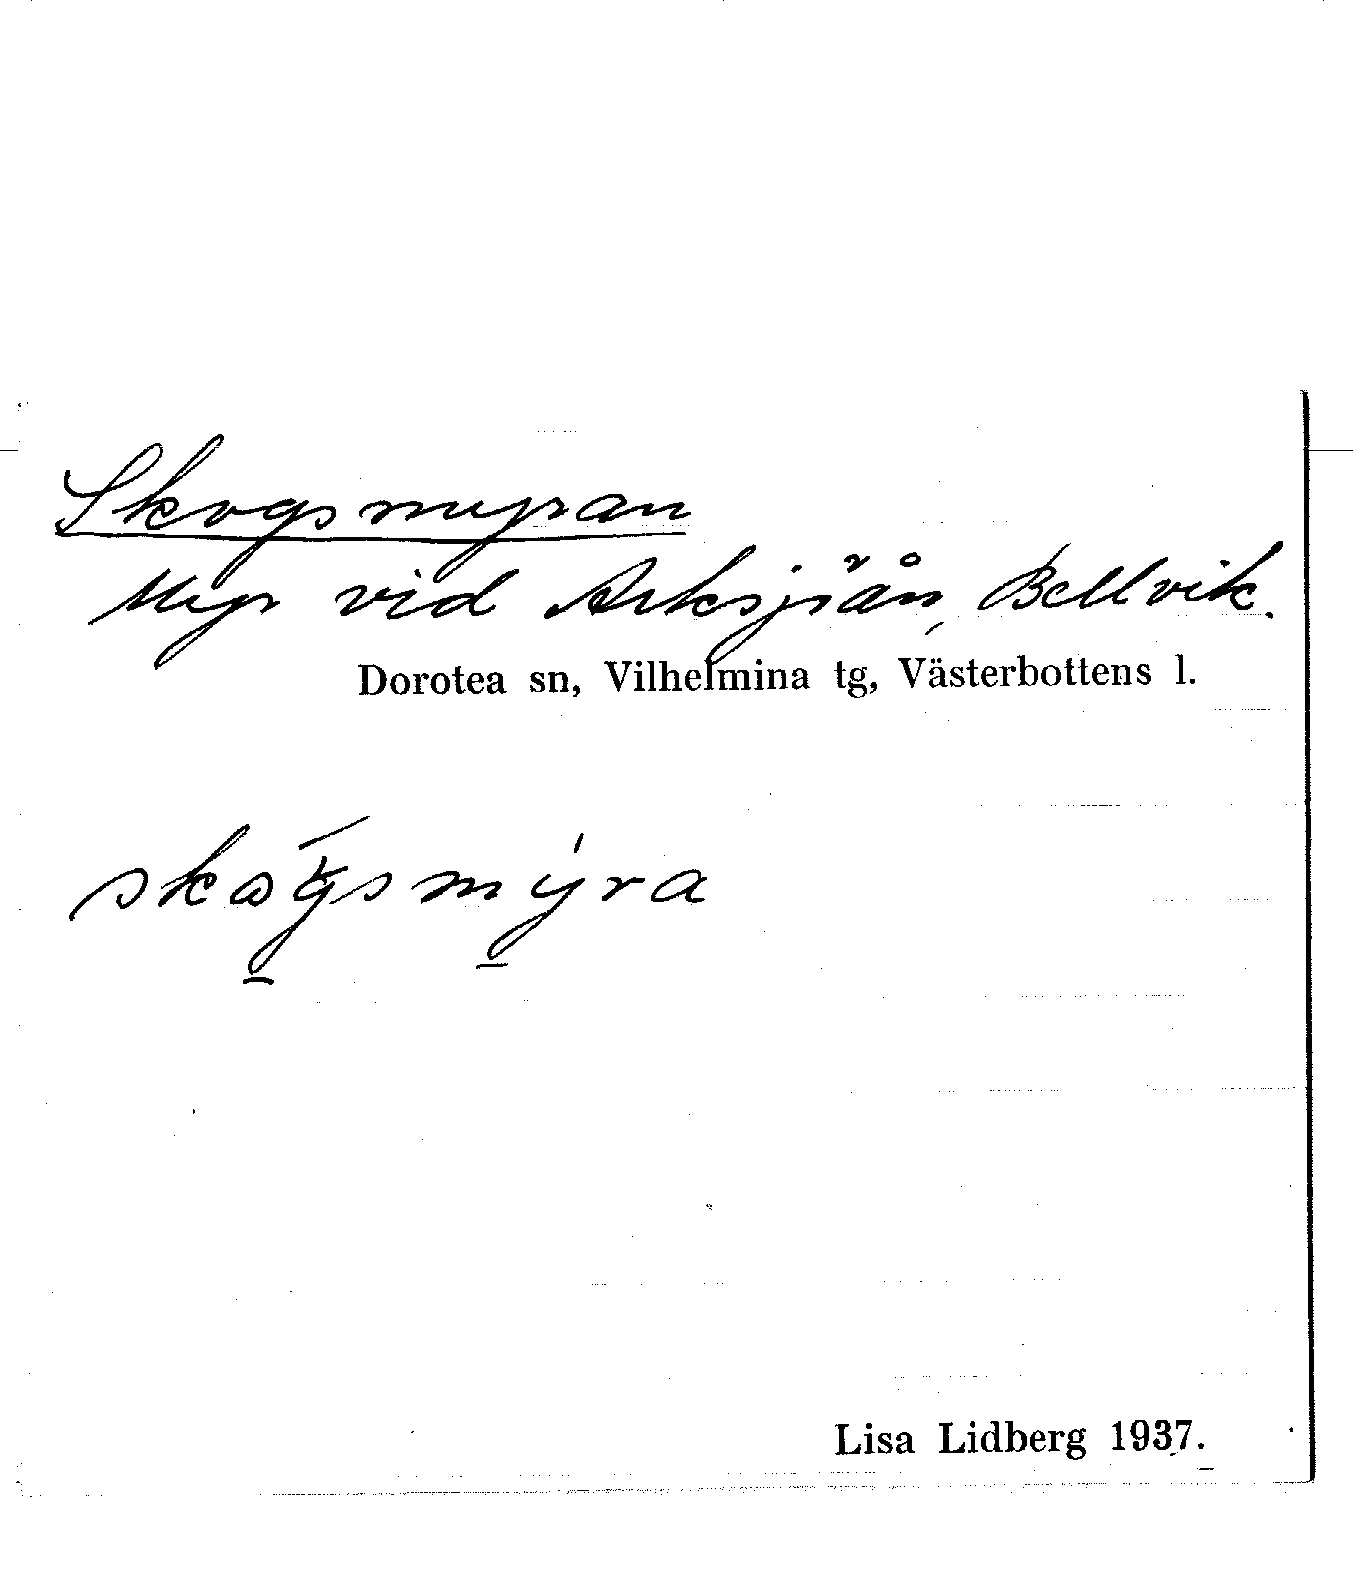 Skogsmyran
Myr vid Arksjöån, Bellvik.
Dorotea sn, Vilhelmina tg, Västerbottens l.
Lisa Lidberg 1937.